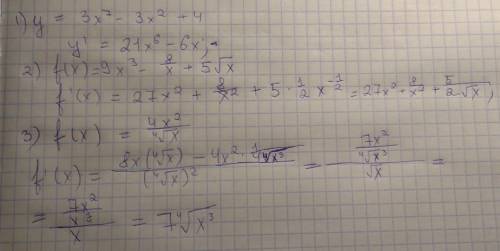 1) y = 3x⁷ - 3x² + 4
y' = 21x⁶ - 6x;
2) f(x) = 9x³ - 8/x + 5√x
f'(x) = 27x² + 8/x² + 5 · 1/2 x^(-1/2) = 27x² + 8/x² + 5/(2√x);
3) f(x) = 4x²/⁴√x
f'(x) = (8x(⁴√x) - 4x² · 1/(4⁴√x³))/(⁴√x)² = (7x²/⁴√x³)/√x =
= (7x²/x³)/x = 7⁴√x³